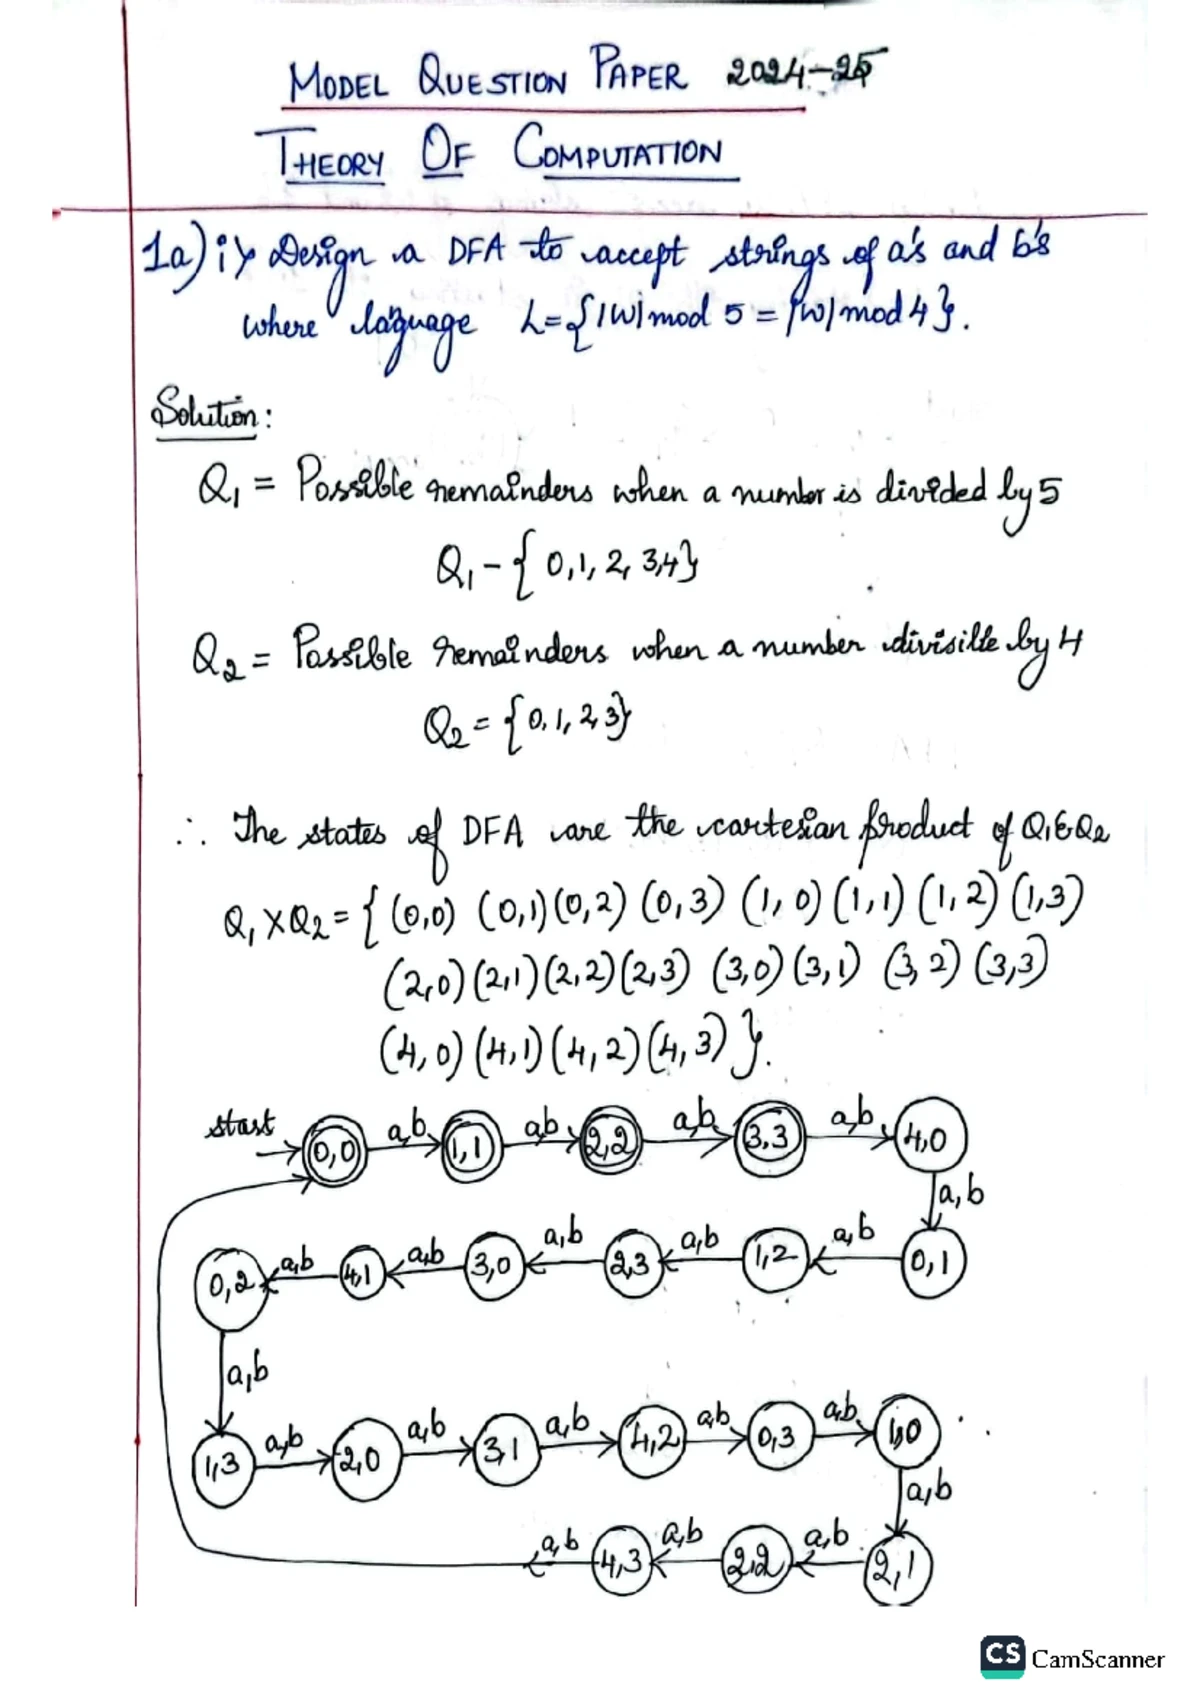 MODEL QUESTION PAPER 2024-25
THEORY OF COMPUTATION
1a) i) Design a DFA to accept strings of a's and b's
where laguage L={|W|mod 5 = |w|mod 4}.
Solution:
Q1 = Possible remainders when a number is divided by 5
Q1 - { 0,1, 2, 3,4}
Q2 = Possible remainders when a number divisible by 4
Q2 = {0,1,2,3}
∴ The states of DFA are the cartesian product of Q1&Q2
Q1 XQ2 = { (0,0) (0,1) (0,2) (0,3) (1,0) (1,1) (1,2) (1,3)
(2,0) (2,1) (2,2) (2,3) (3,0) (3,1) (3,2) (3,3)
(4,0) (4,1) (4,2) (4,3) }.
start 0,0 a,b 1,1 a,b 2,2 a,b 3,3 a,b 4,0
a,b
0,2 a,b 4,1 a,b 3,0 a,b 2,3 a,b 1,2 a,b 0,1
a,b
1,3 a,b 2,0 a,b 3,1 a,b 4,2 a,b 0,3 a,b 1,0
a,b
a,b 4,3 a,b 2,2 a,b 2,1
CS CamScanner